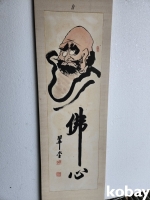 佛心
kobay